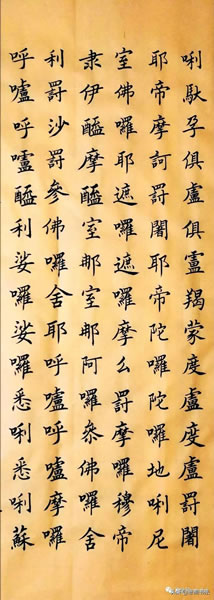 唎馱孕俱盧俱盧羯蒙度盧度盧罰闍
耶帝摩訶罰闍耶帝陀囉陀囉地唎尼
室佛囉耶遮囉遮囉摩么罰摩囉穆帝
隶伊醯摩醯室那室那阿囉參佛囉舍
利罰沙罰參佛囉舍耶呼嚧呼嚧摩囉
呼嚧呼嚧醯利娑囉娑囉悉唎悉唎蘇